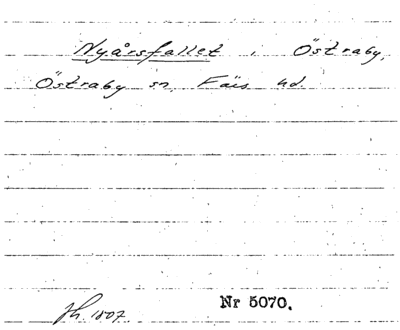 Nyårsfallet i Östraby,
Östraby sn, Färs hd.
Nr 5070.
1807